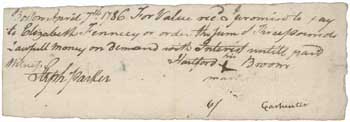 Boston April 7th 1786 For Value recd I promise to pay
to Elizabeth Fennecy or order the Sum of Three pounds
Lawfull Money on demand with Interest untill paid
Witness
Hartford his Broom
mark
Steph Parker
6/
Carpenter